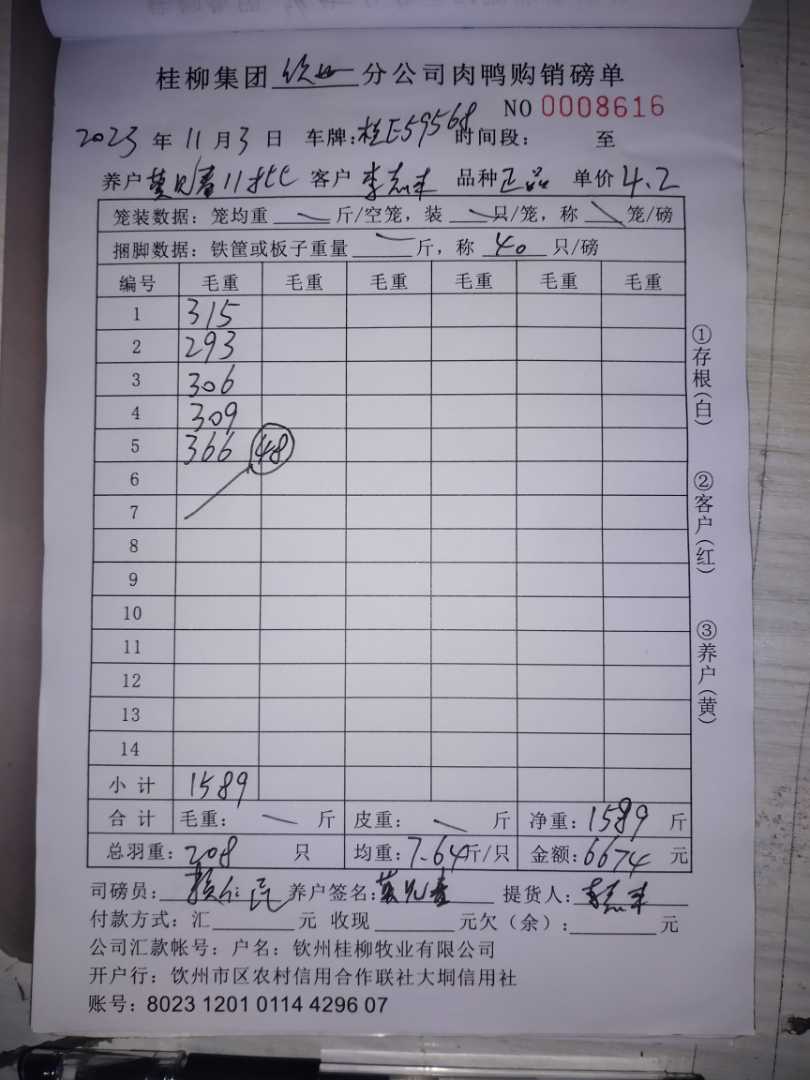 桂柳集团 钦州 分公司肉鸭购销磅单
NO 0008616
2023 年 11 月 3 日 车牌:桂E59568 时间段: 至
养户 11批 客户 李志丰 品种 正品 单价 4.2
笼装数据:笼均重 斤/空笼,装 只/笼,称 笼/磅
捆脚数据:铁筐或板子重量 斤,称 40 只/磅
编号 毛重 毛重 毛重 毛重 毛重 毛重
1 315
2 293
3 306
4 309
5 366 48
6
7
8
9
10
11
12
13
14
小计 1589
合计 毛重: 斤 皮重: 斤 净重:1589 斤
总羽重:208 只 均重:7.64斤/只 金额:6674 元
司磅员: 养户签名: 提货人:李志丰
付款方式:汇 元 收现 元欠(余): 元
公司汇款帐号:户名:钦州桂柳牧业有限公司
开户行:饮州市区农村信用合作联社大垌信用社
账号:8023 1201 0114 4296 07
①存根(白)
②客户(红)
③养户(黄)